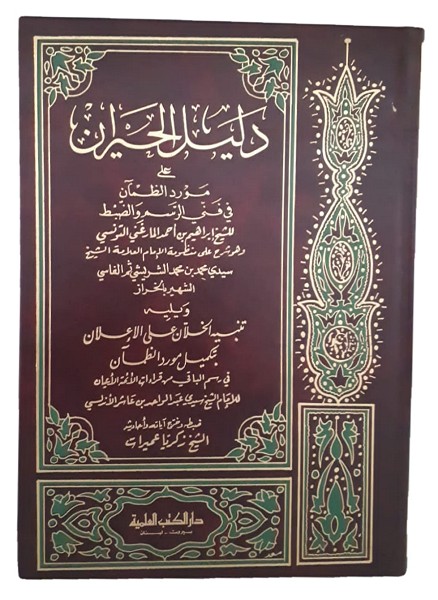 دليل الحيران
على
مورد الظمآن
في فني الرسم والضبط
للشيخ إبراهيم بن أحمد المارغني التونسي
وهو شرح على منظومة الإمام العلامة الشيخ
سيدي محمد بن محمد الشريشي ثم الفاسي
الشهير بالخراز
ويليه
تنبيه الخلان على الإعلان
بتكميل مورد الظمآن
في رسم الباقي من قراءات الأئمة الأعيان
للإمام الشيخ سيدي عبد الواحد بن عاشر الأندلسي
ضبطه وخرج آياته وأحاديثه
الشيخ زكريا عميرات
دار الكتب العلمية
بيروت - لبنان